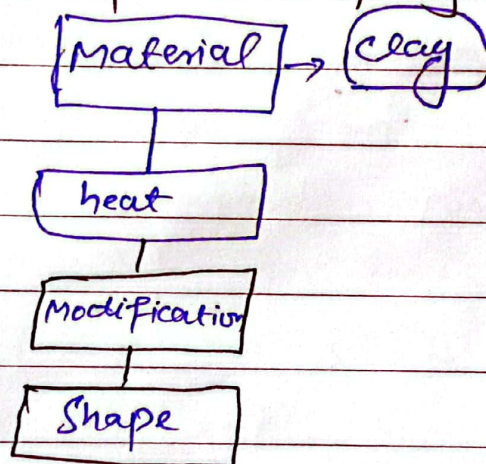 Material → clay
heat
Modification
Shape